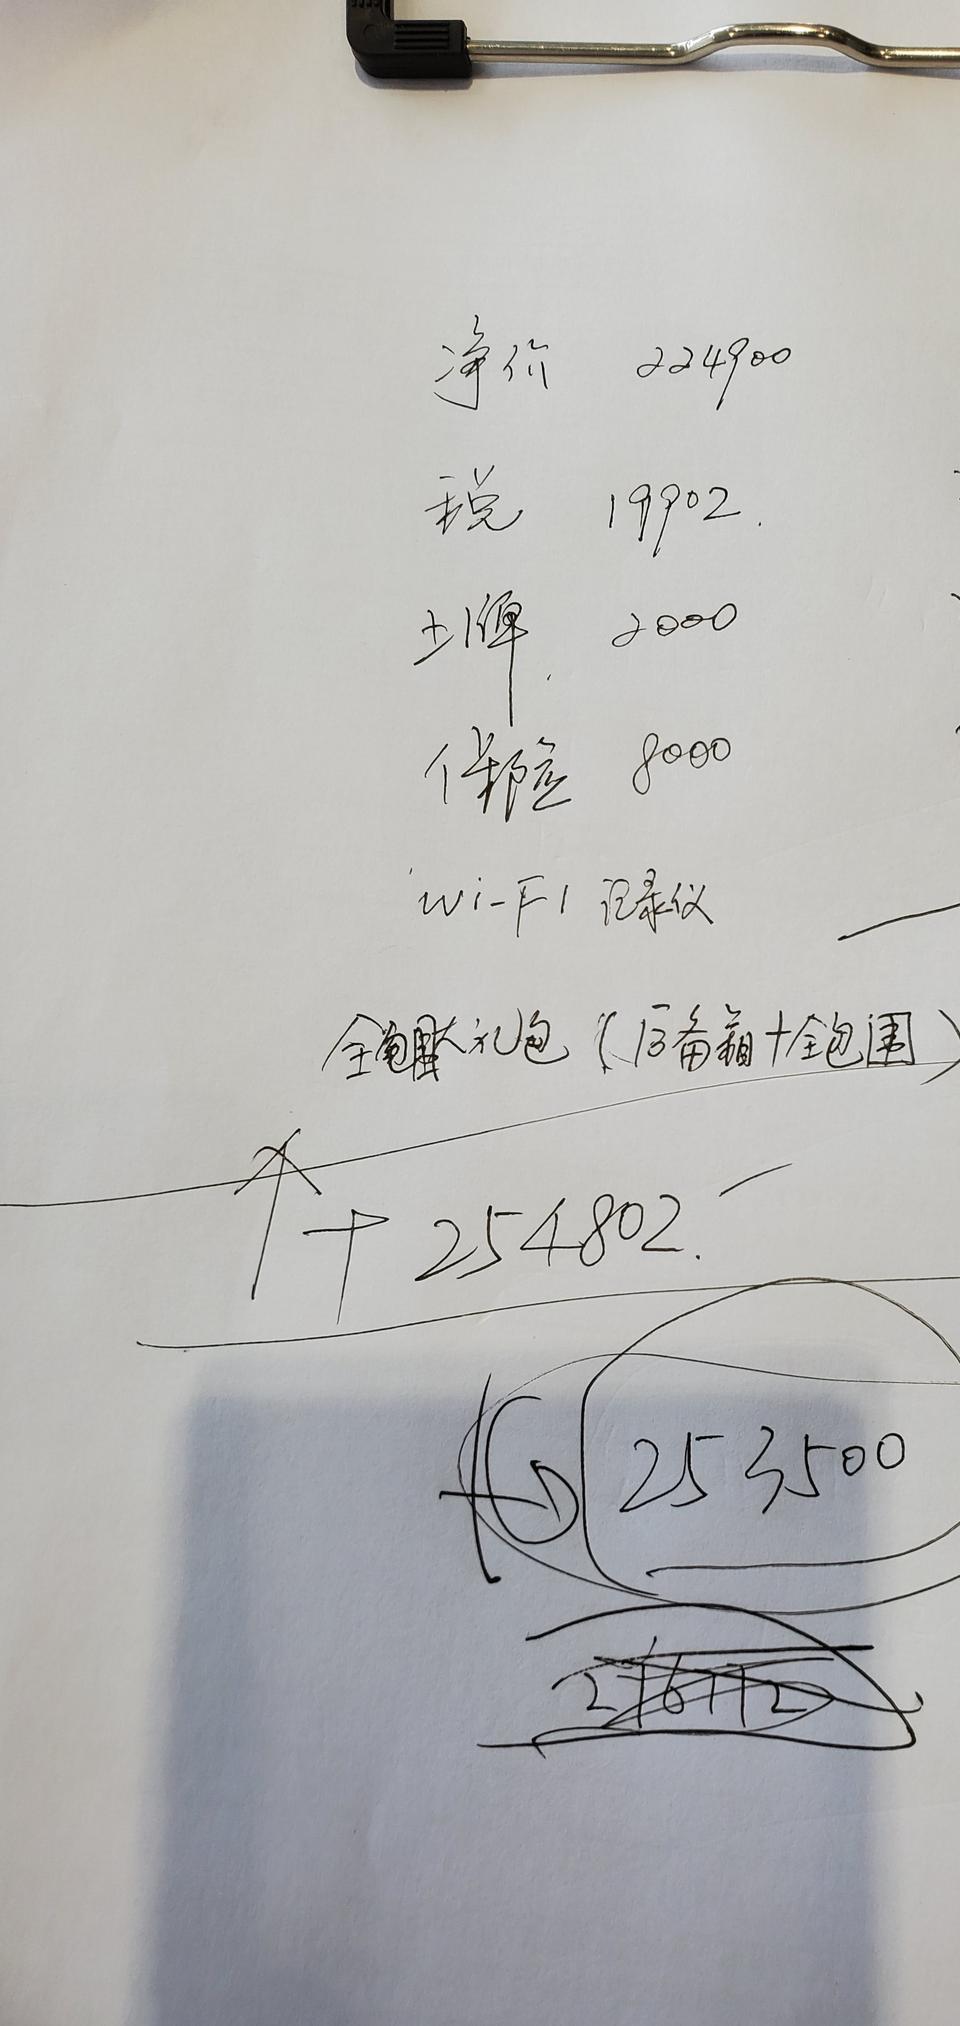 净价 224900
税 19902.
上牌 2000
保险 8000
Wi-Fi 记录仪
大礼包（后备箱+全包围）
+ 254802.
253500